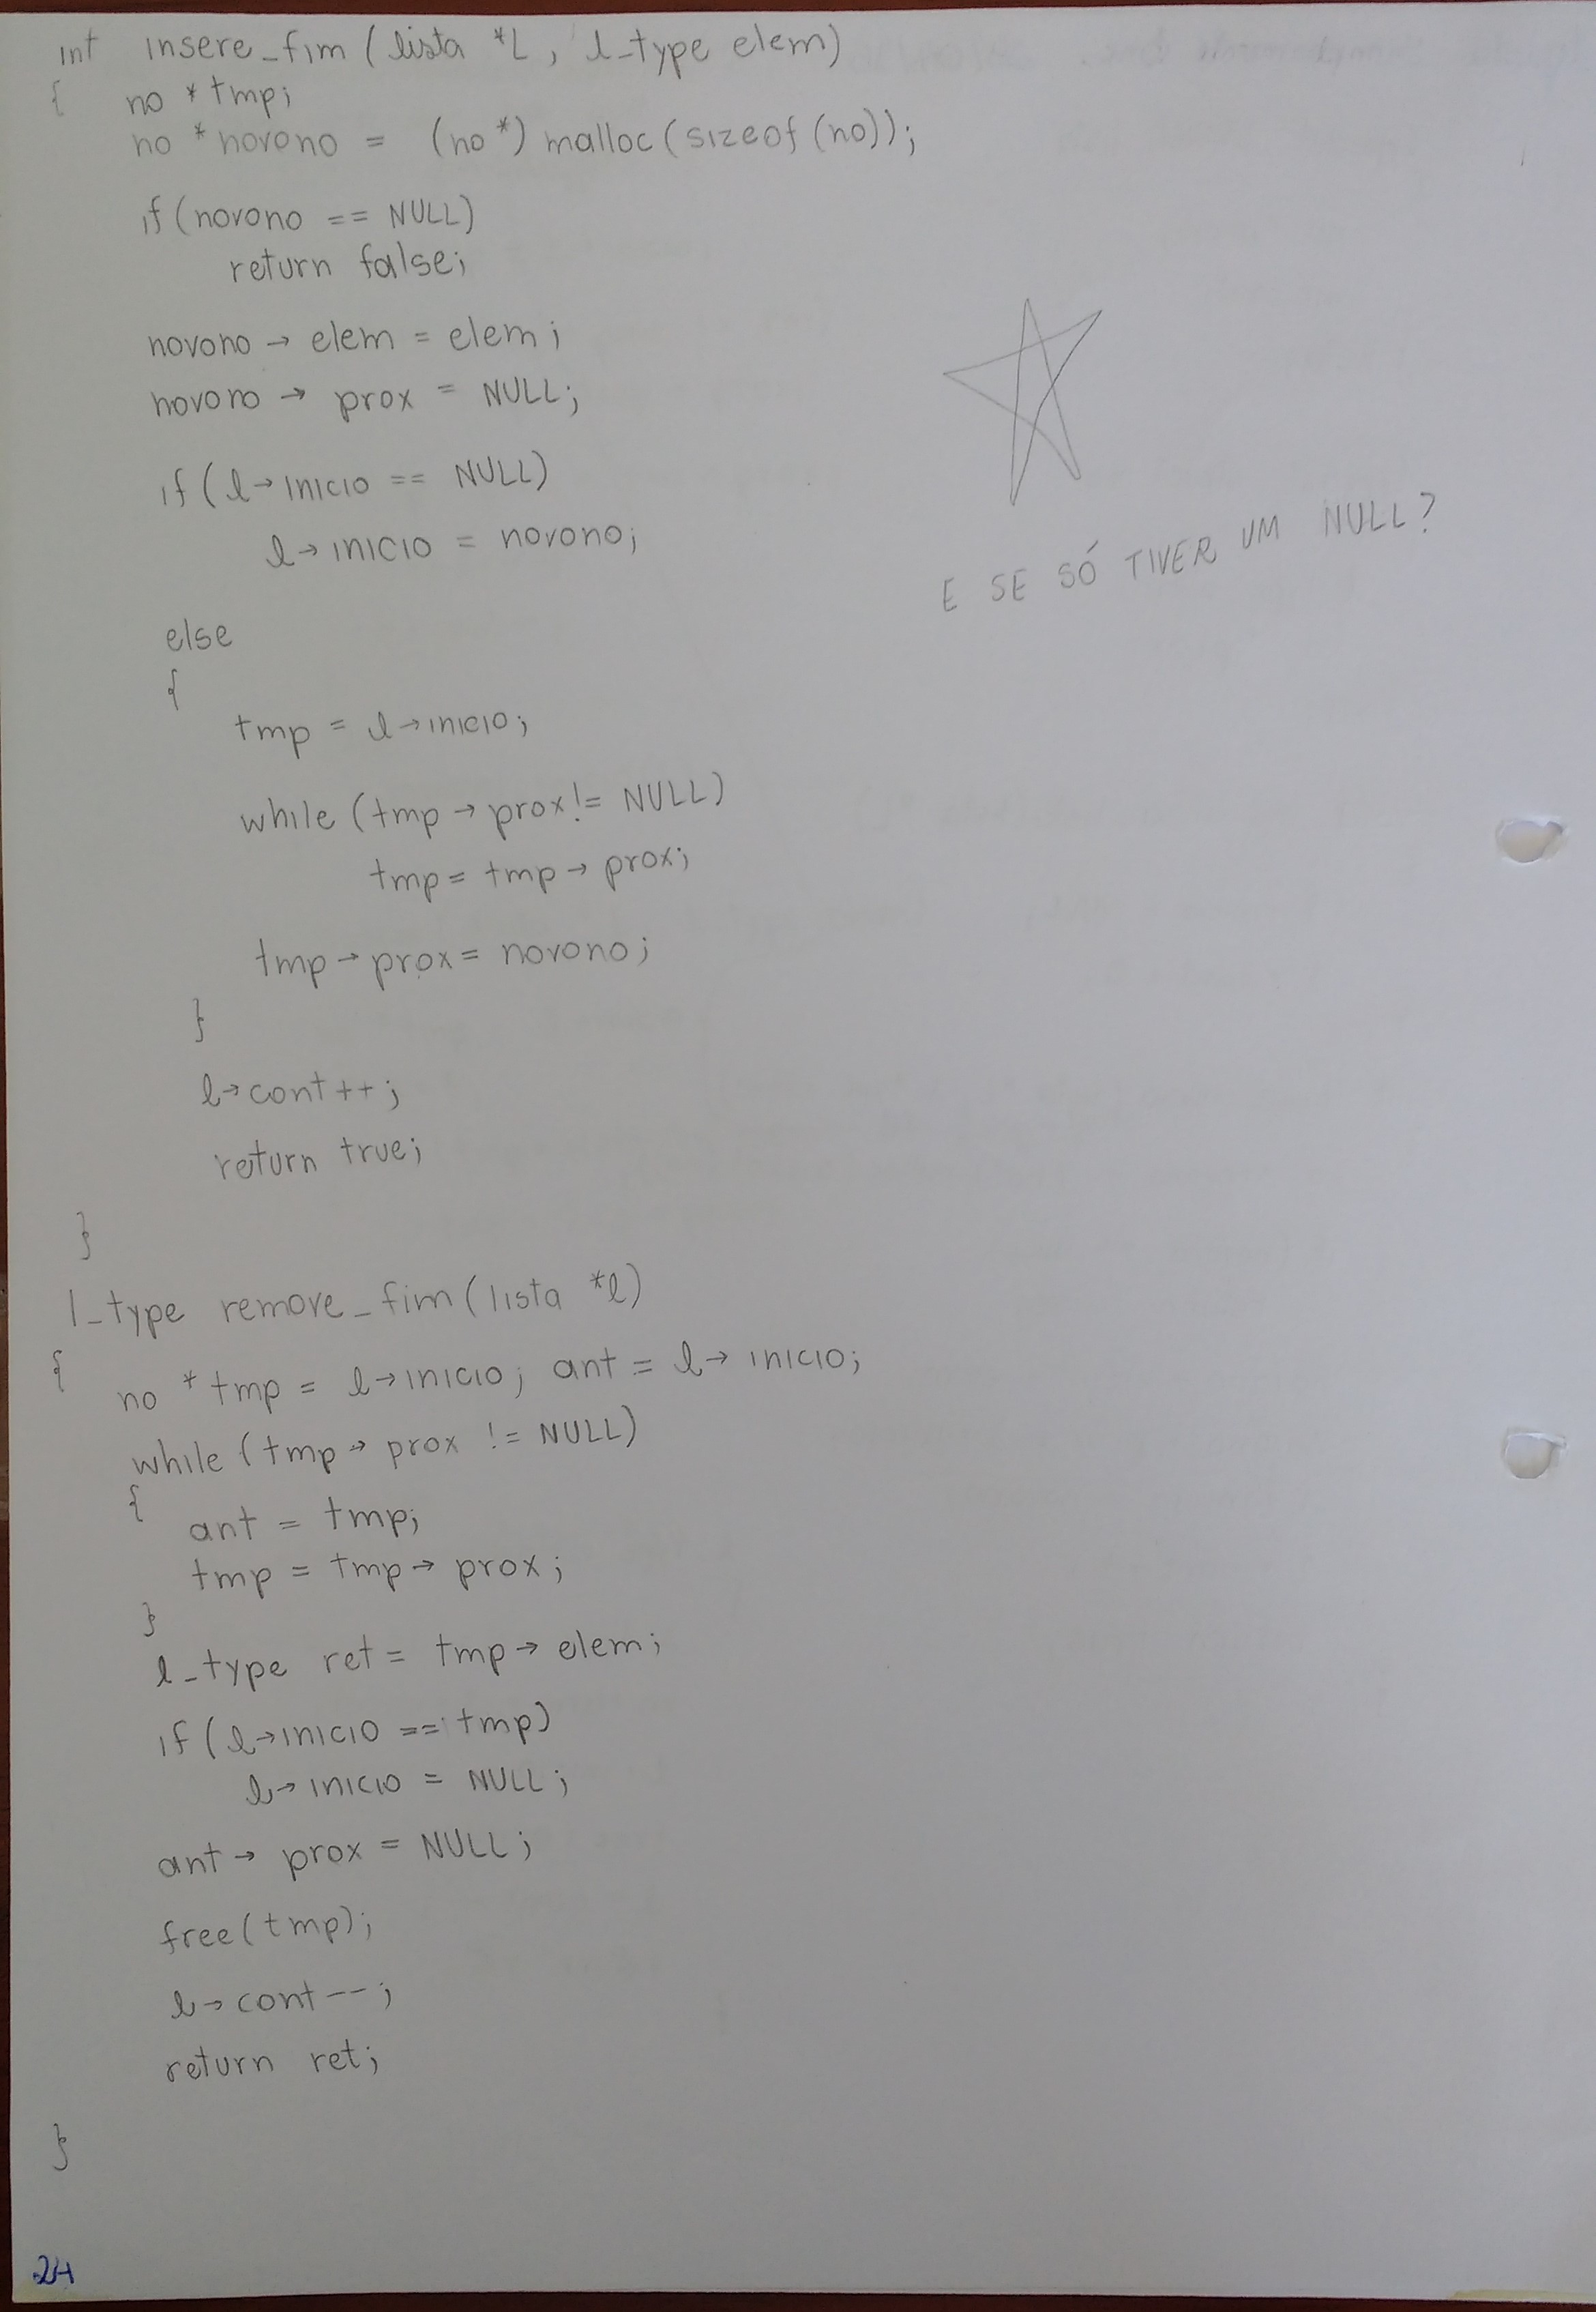 int insere_fim (lista *L, l_type elem)
{ no * tmp;
no * novono = (no *) malloc (sizeof (no));
if (novono == NULL)
return false;
novono → elem = elem;
novono → prox = NULL;
if (l → inicio == NULL)
l → inicio = novono;
E SE SÓ TIVER UM NULL?
else
{
tmp = l → inicio;
while (tmp → prox != NULL)
tmp = tmp → prox;
tmp → prox = novono;
}
l → cont ++;
return true;
}
l_type remove_fim (lista *l)
{ no * tmp = l → inicio; ant = l → inicio;
while (tmp → prox != NULL)
{ ant = tmp;
tmp = tmp → prox;
}
l_type ret = tmp → elem;
if (l → inicio == tmp)
l → inicio = NULL;
ant → prox = NULL;
free (tmp);
l → cont --;
return ret;
}
24